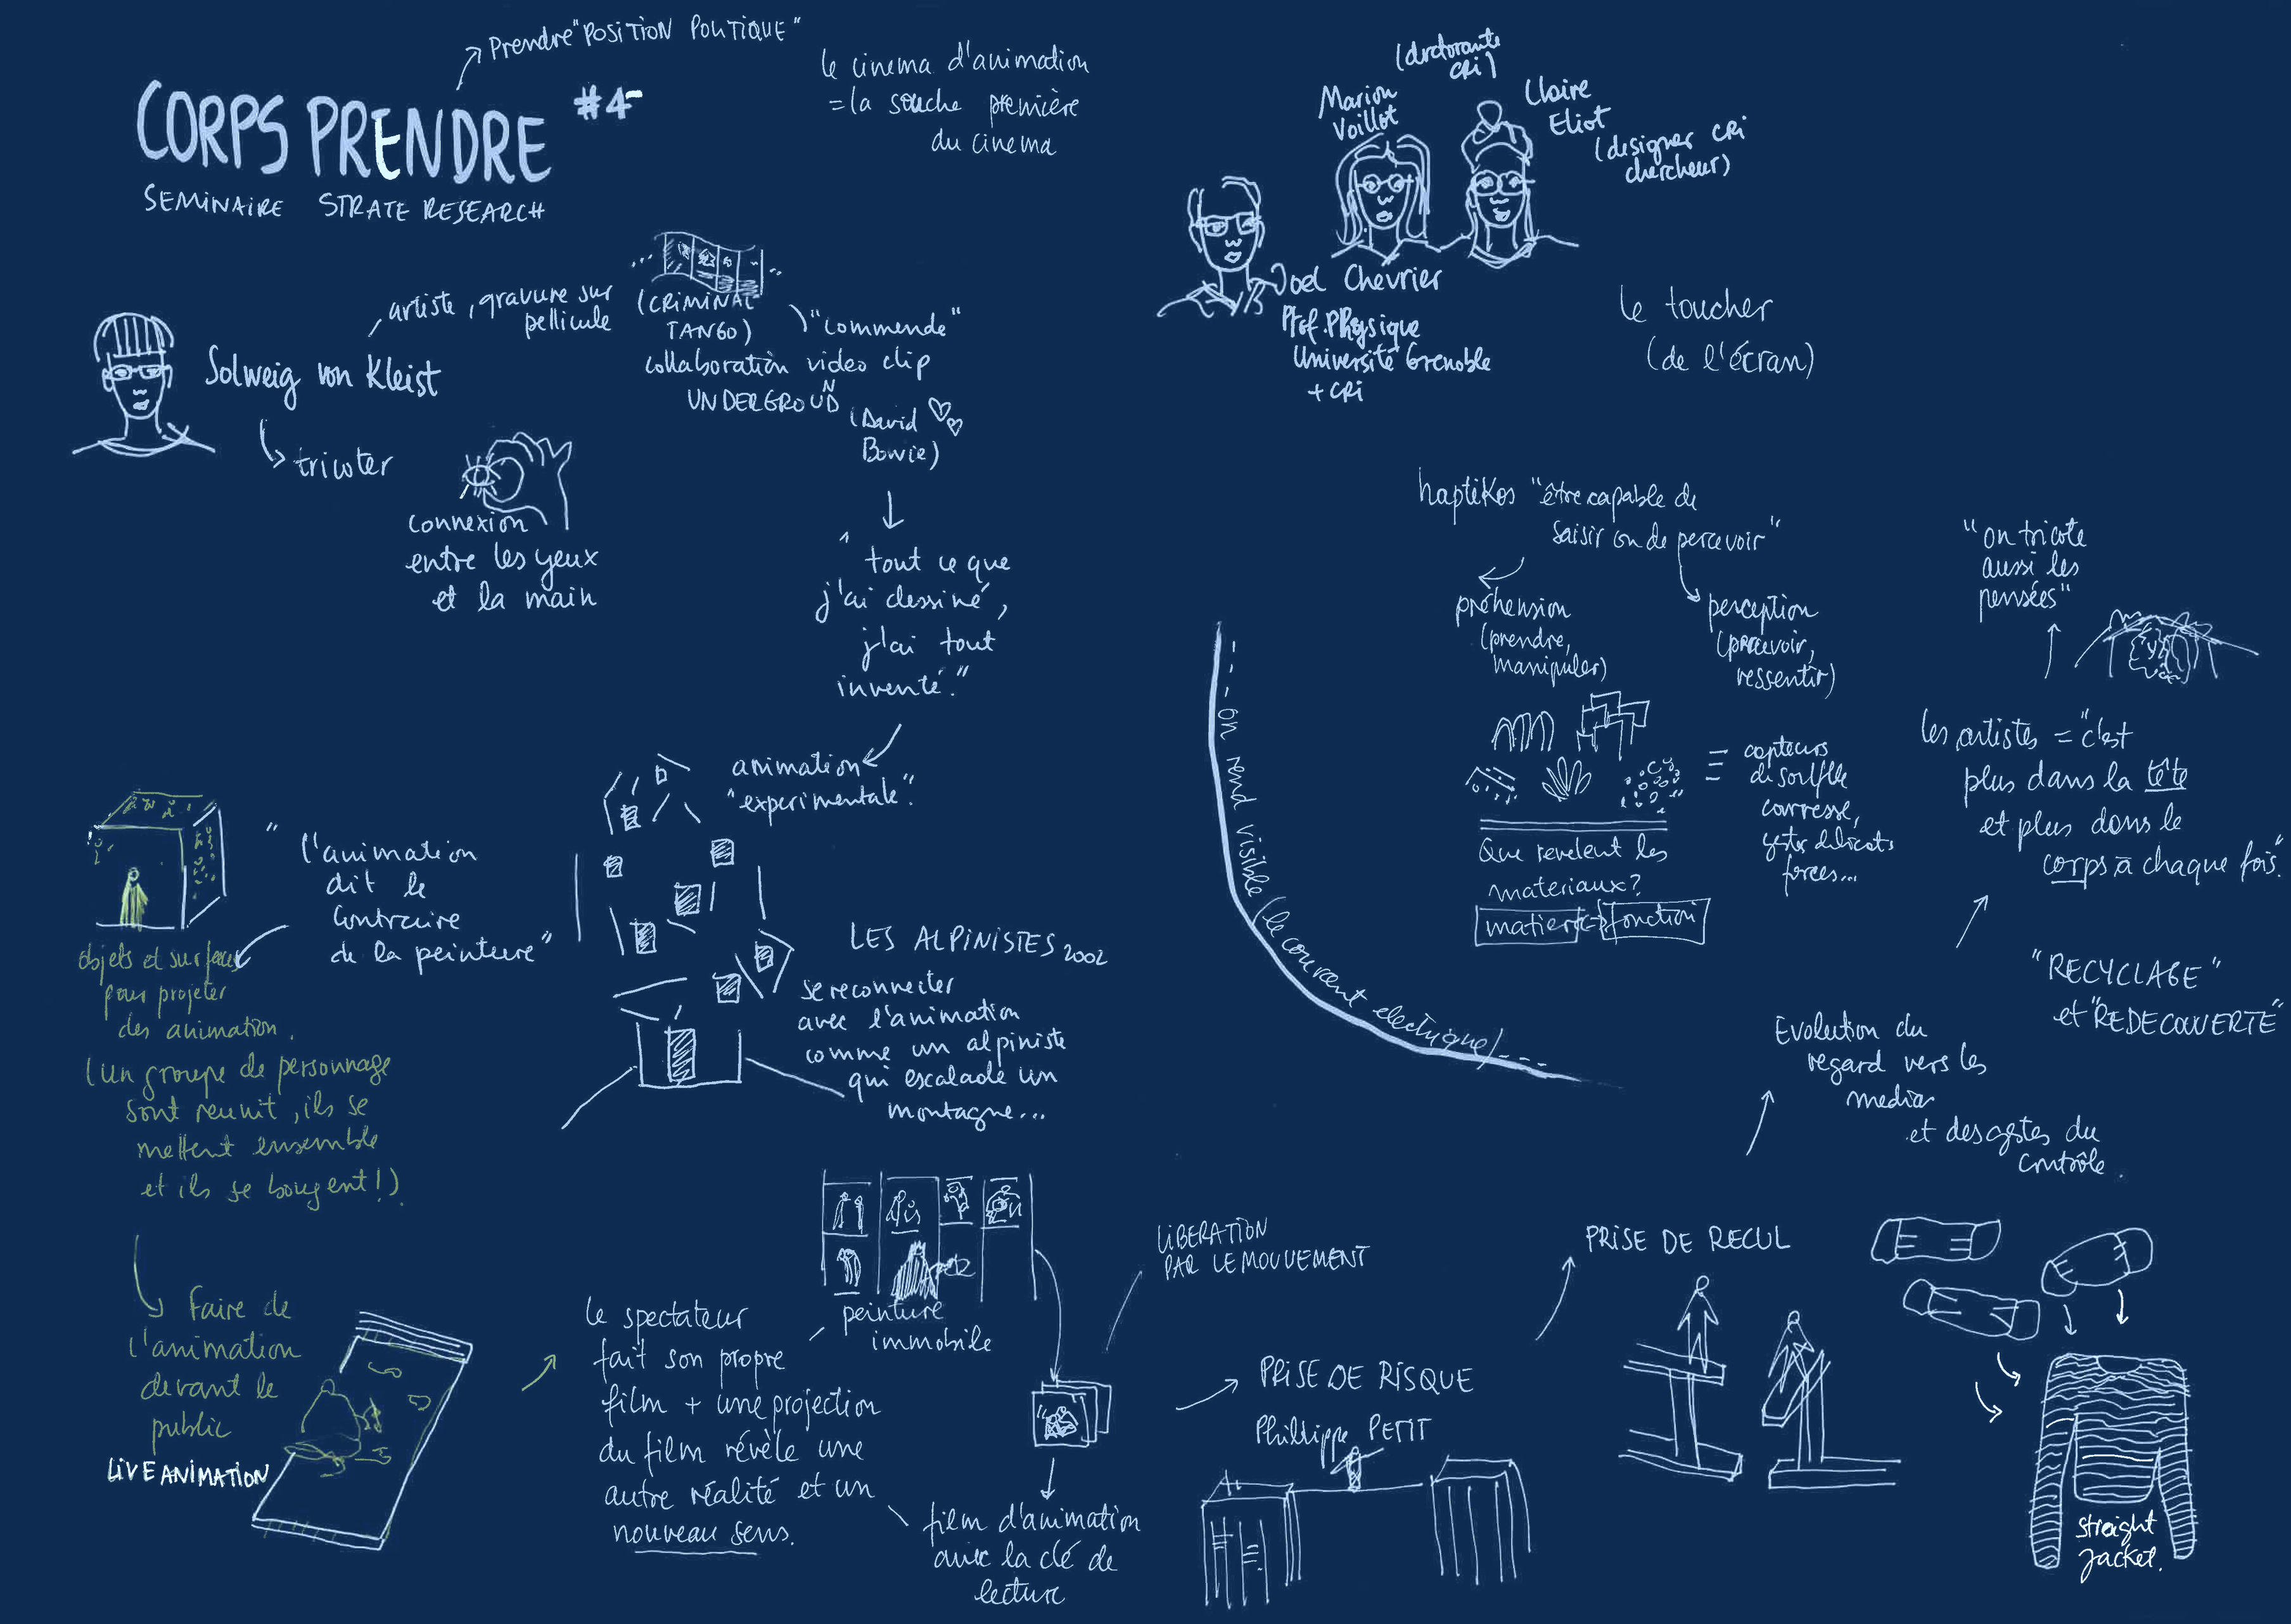 Prendre "POSITION POLITIQUE"
CORPS PRENDRE #4
SEMINAIRE STRATE RESEARCH
le cinema d'animation
= la souche première
du cinema
Solweig von Kleist
artiste, gravure sur
pellicule
(CRIMINAL
TANGO)
"commende"
collaboration video clip
UNDERGROUND
(David
Bowie)
tricoter
connexion
entre les yeux
et la main
" tout ce que
j'ai dessiné,
j'ai tout
inventé."
animation
"experimentale".
"l'animation
dit le
contraire
de la peinture"
objets et surfaces
pour projeter
des animation.
(un groupe de personnage
sont reunit, ils se
mettent ensemble
et ils se bougent!)
Faire de
l'animation
devant le
public
LIVE ANIMATION
LES ALPINISTES 2002
se reconnecter
avec l'animation
comme un alpiniste
qui escalade un
montagne...
le spectateur
fait son propre
film + une projection
du film révèle une
autre réalité et un
nouveau sens.
peinture
immobile
film d'animation
avec la clé de
lecture
LIBERATION
PAR LE MOUVEMENT
PRISE DE RISQUE
Phillippe PETIT
PRISE DE RECUL
straight
jacket.
Evolution du
regard vers les
medias
et des gestes du
contrôle.
"RECYCLAGE"
et "REDECOUVERTE"
les artistes = "c'est
plus dans la tête
et plus dans le
corps à chaque fois."
"on tricote
aussi les
pensées"
(doctorante
CRI)
Marion
Voillot
Claire
Eliot
(designer CRI
chercheur)
Joel Chevrier
Prof. Physique
Université Grenoble
+ CRI
le toucher
(de l'écran)
haptikos "être capable de
saisir ou de percevoir"
préhension
(prendre,
manipuler)
perception
(percevoir,
ressentir)
= capteurs
de souffle
carresse,
gestes délicats
forces...
Que revelent les
materiaux?
matiere <=> fonction
--- on rend visible (le courant electrique) ---